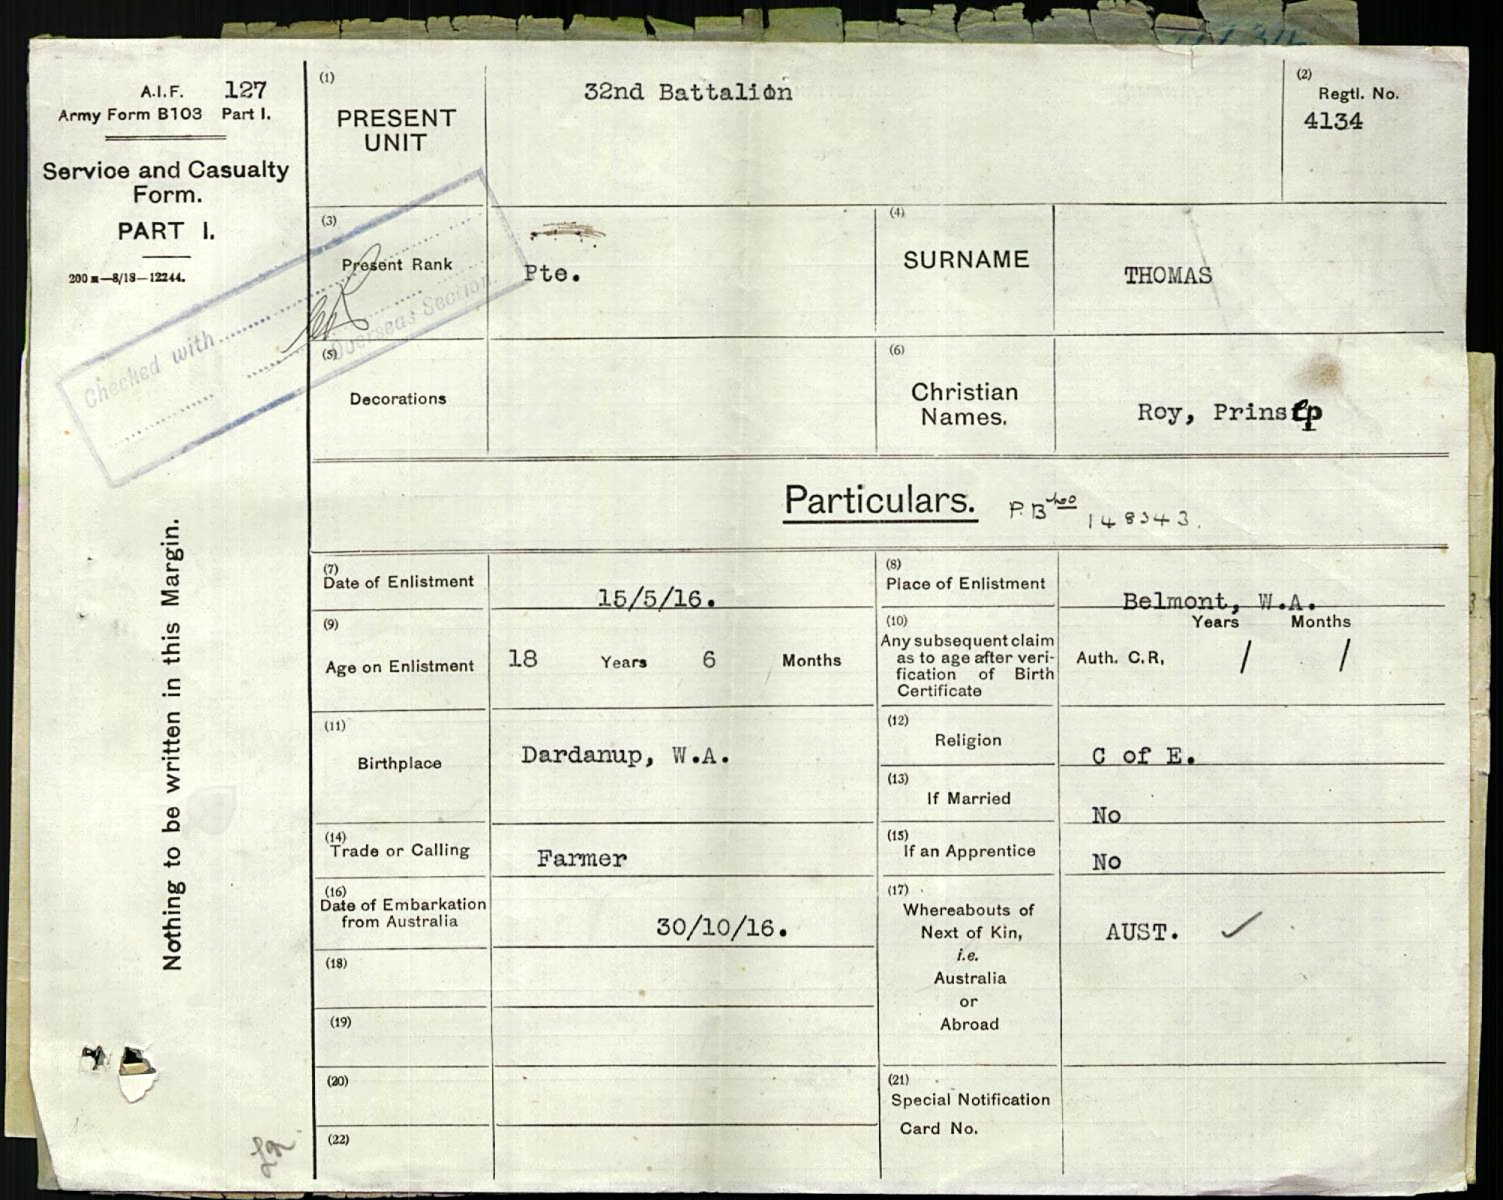 A.I.F. 127
Army Form B103 Part I.
Service and Casualty
Form.
PART I.
200 m—8/18—12244.
Checked with
Overseas Section.
Nothing to be written in this Margin.
(1)
PRESENT
UNIT
32nd Battalion
(2)
Regtl. No.
4134
(3)
Present Rank
Pte.
(4)
SURNAME
THOMAS
(5)
Decorations
(6)
Christian
Names.
Roy, Prinsep
Particulars.
(7)
Date of Enlistment
15/5/16.
(8)
Place of Enlistment
Belmont, W.A.
(9)
Age on Enlistment
18 Years 6 Months
(10)
Any subsequent claim
as to age after veri-
fication of Birth
Certificate
Years Months
Auth. C.R, / /
(11)
Birthplace
Dardanup, W.A.
(12)
Religion
C of E.
(13)
If Married
No
(14)
Trade or Calling
Farmer
(15)
If an Apprentice
No
(16)
Date of Embarkation
from Australia
30/10/16.
(17)
Whereabouts of
Next of Kin,
i.e.
Australia
or
Abroad
AUST.
(18)
(19)
(20)
(21)
Special Notification
Card No.
(22)